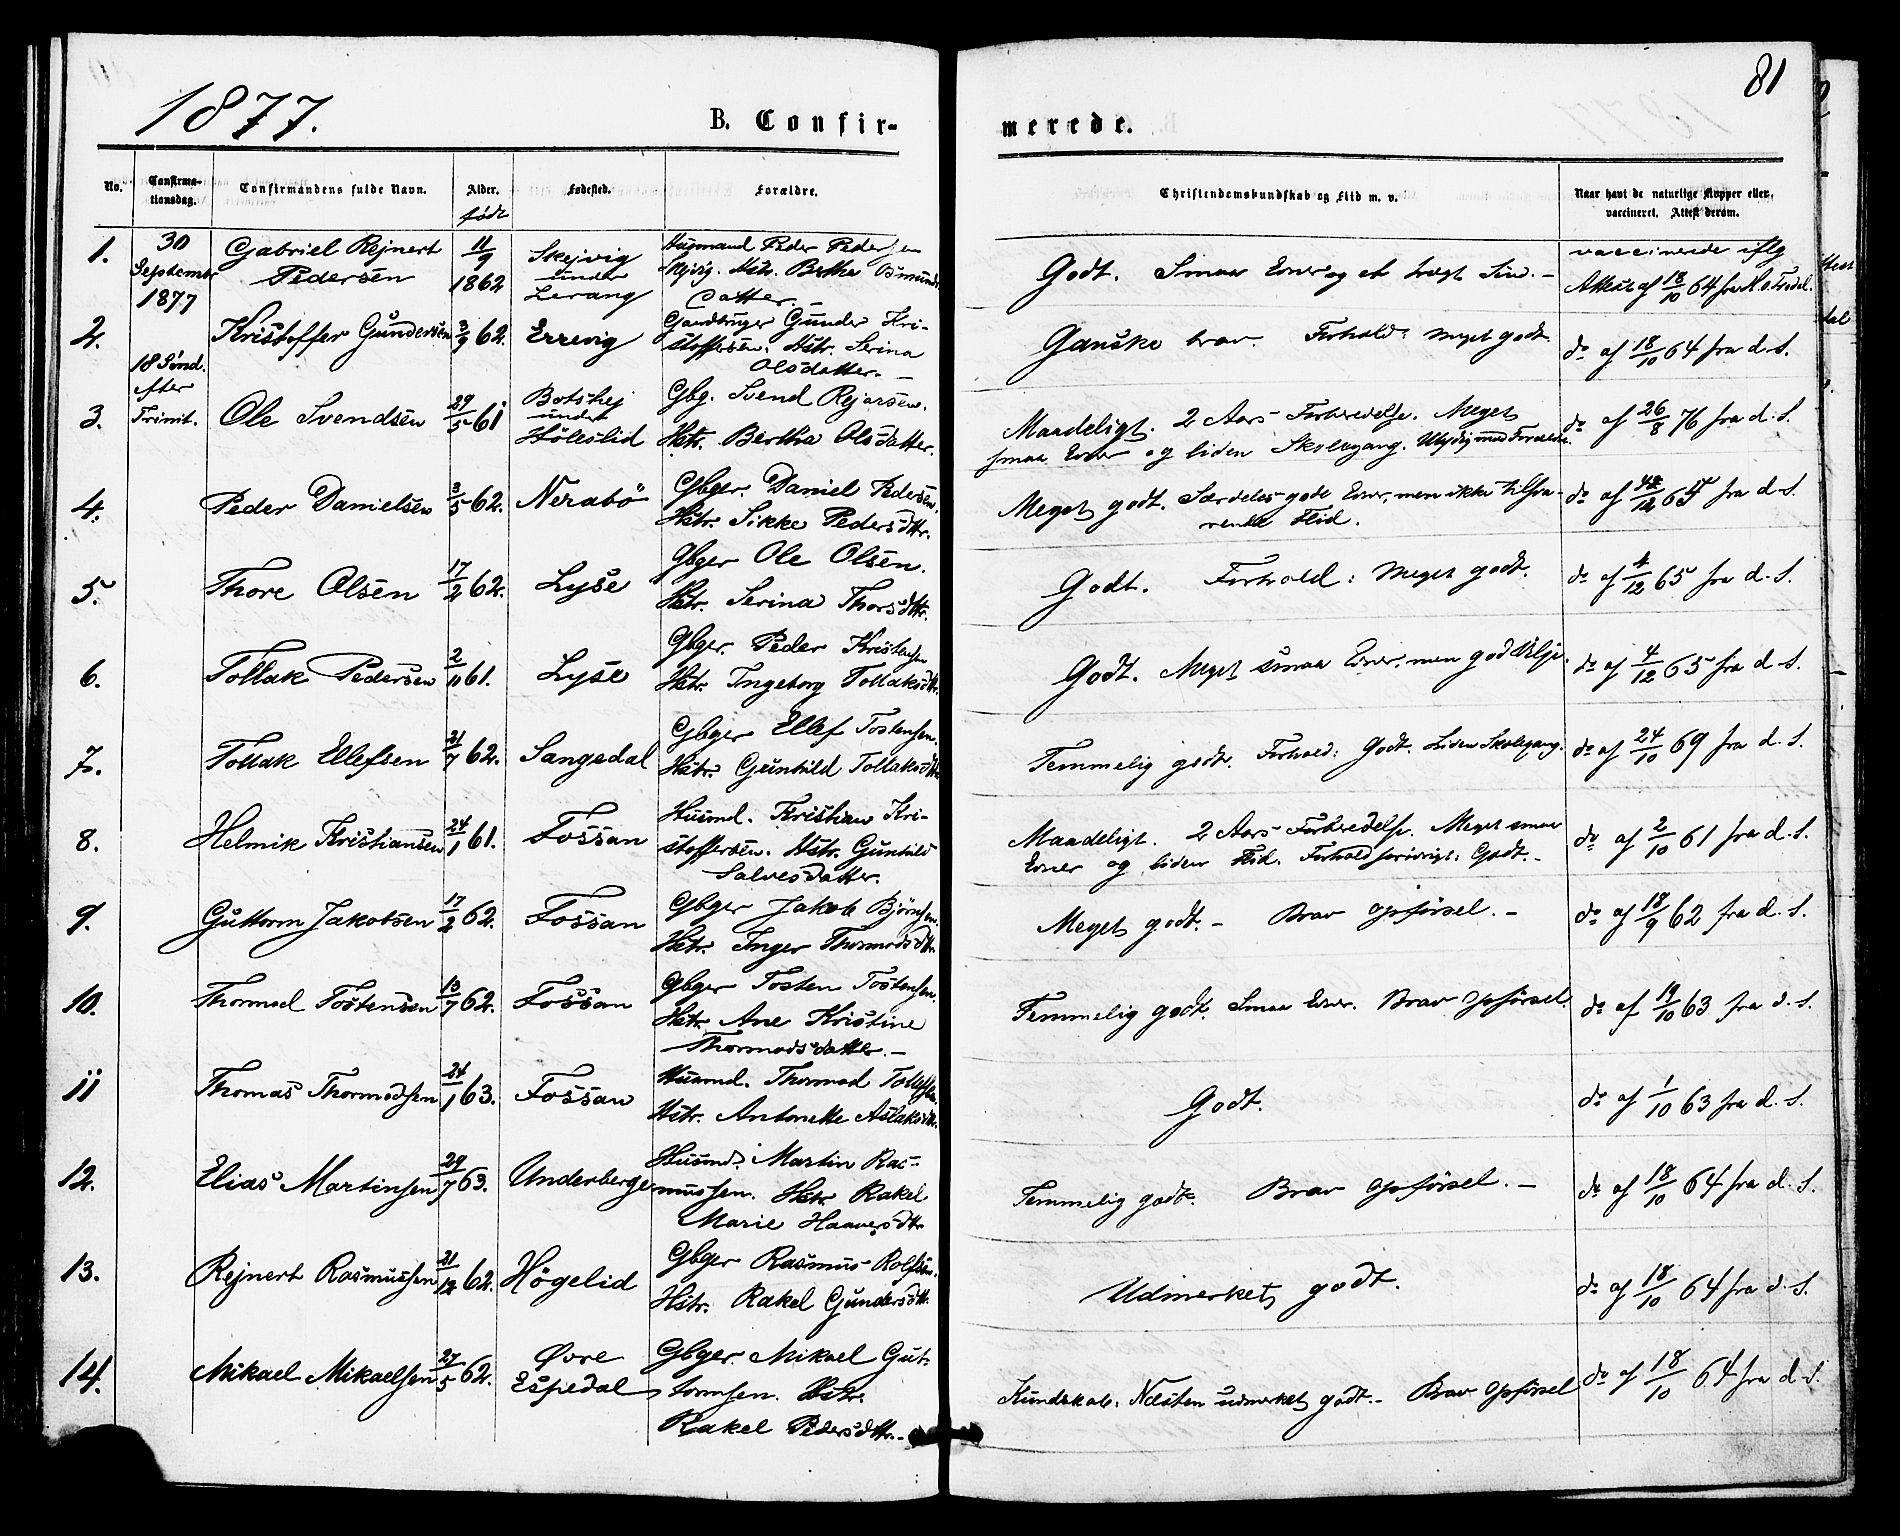 81
1877.
B. Confir-
merede.
No.
Confirma-
tionsdag.
Confirmandens fulde Navn.
Alder.
født
Fødested.
Forældre.
Christendomskundskab og Flid m. v.
Naar havt de naturlige Kopper eller
vaccineret. Attest derom.
1.
30
September
1877
Gabriel Rejnert
Pedersen
11/9
1862
Skejvig
under
Lerang
Husmand Peder Pedersen
Skejvig. Hstr. Berthe Osmunds
Datter. —
Godt. Smaa Evner og et Sind. —
vaccinerede iflg
Attest af 18/10 64 fra
2.
18 Sønd.
efter
Trinit.
Kristoffer Gundersen
3/9 62.
Errevig
Gaardbruger Gunder Kri-
stoffersen. Hstr. Serina
Olsdatter. —
Ganske brav. Forhold: meget godt.
do af 18/10 64 fra d. S.
3.
Ole Svendsen
29/5 61
Botshej
under
Höleslid
Gbg. Svend Rejarsen.
Hstr. Berthe Olsdatter.
Maadeligt. 2 Aars Forberedelse. Meget
smaa Evner og liden Skolegang.
do af 26/8 76 fra d. S.
4.
Peder Danielsen
3/5 62.
Nerabö
Gbger. Daniel Pedersen.
Hstr. Sikke Pedersdttr.
Meget godt. Særdeles gode Evner, men ikke tilsva-
rende Flid.
do af fra d. S.
5.
Thore Olsen
17/2 62.
Lyse
Gbger Ole Olsen.
Hstr. Serina Thorsdttr.
Godt. Forhold: meget godt.
do af 4/12 65 fra d. S.
6.
Tollak Pedersen
2/11 61.
Lyse
Gbger. Peder Kristensen
Hstr. Ingeborg Tollaksdtt.
Godt. Meget smaa Evner, men god Vilje.
do af 4/12 65 fra d. S.
7.
Tollak Ellefsen
21/7 62.
Sangesdal
Gbger Ellef Tostensen.
Hstr. Gunhild Tollaksdtt
Temmelig godt. Forhold: Godt. Liden Skolegang.
do af 24/10 69 fra d. S.
8.
Helmik Kristiansen
24/1 61.
Fossan
Husmd. Kristian Kri-
stoffersen. Hstr. Gunhild
Salvesdatter.
Maadeligt. 2 Aars Forberedelse. Meget smaa
Evner og liden Flid. Forhold forøvrigt: Godt. —
do af 2/10 61 fra d. S.
9.
Guttorm Jakobsen
17/2 62.
Fossan
Gbger Jakob Bjørnsen.
Hstr. Inger Thormodsdtt.
Meget godt. — Brav Opførsel. —
do af 18/9 62 fra d. S.
10.
Thormod Tostensen
13/7 62.
Fossan
Gbger Tosten Tostensen.
Hstr. Ane Kristine
Thormodsdatter. —
Temmelig godt. Smaa Evner. Brav Opførsel
do af 19/10 63 fra d. S.
11
Thomas Thormodsen
24/1 63.
Fossan
Husmd. Thormod
Hstr. Antonette Aslaksdtt.
Godt.
do af 1/10 63 fra d. S.
12.
Elias Martinsen
29/7 63.
Underberge
Husmd. Martin Ras-
mussen. Hstr. Rakel
Marie Haaversdtt.
Temmelig godt. Brav Opførsel. —
do af 18/10 64 fra d. S.
13.
Rejnert Rasmussen
21/12 62.
Högelid
Gbger Rasmus Rolfsen.
Hstr. Rakel Gundersdtt.
Udmerket godt.
do af 18/10 64 fra d. S.
14.
Mikael Mikaelsen
27/5 62.
Øvre
Espedal
Gbger. Mikael Gut-
tormsen. Hstr.
Rakel Pedersdttr. —
Kundskab: Næsten udmerket godt. — Brav Opførsel
do af 18/10 64 fra d. S.